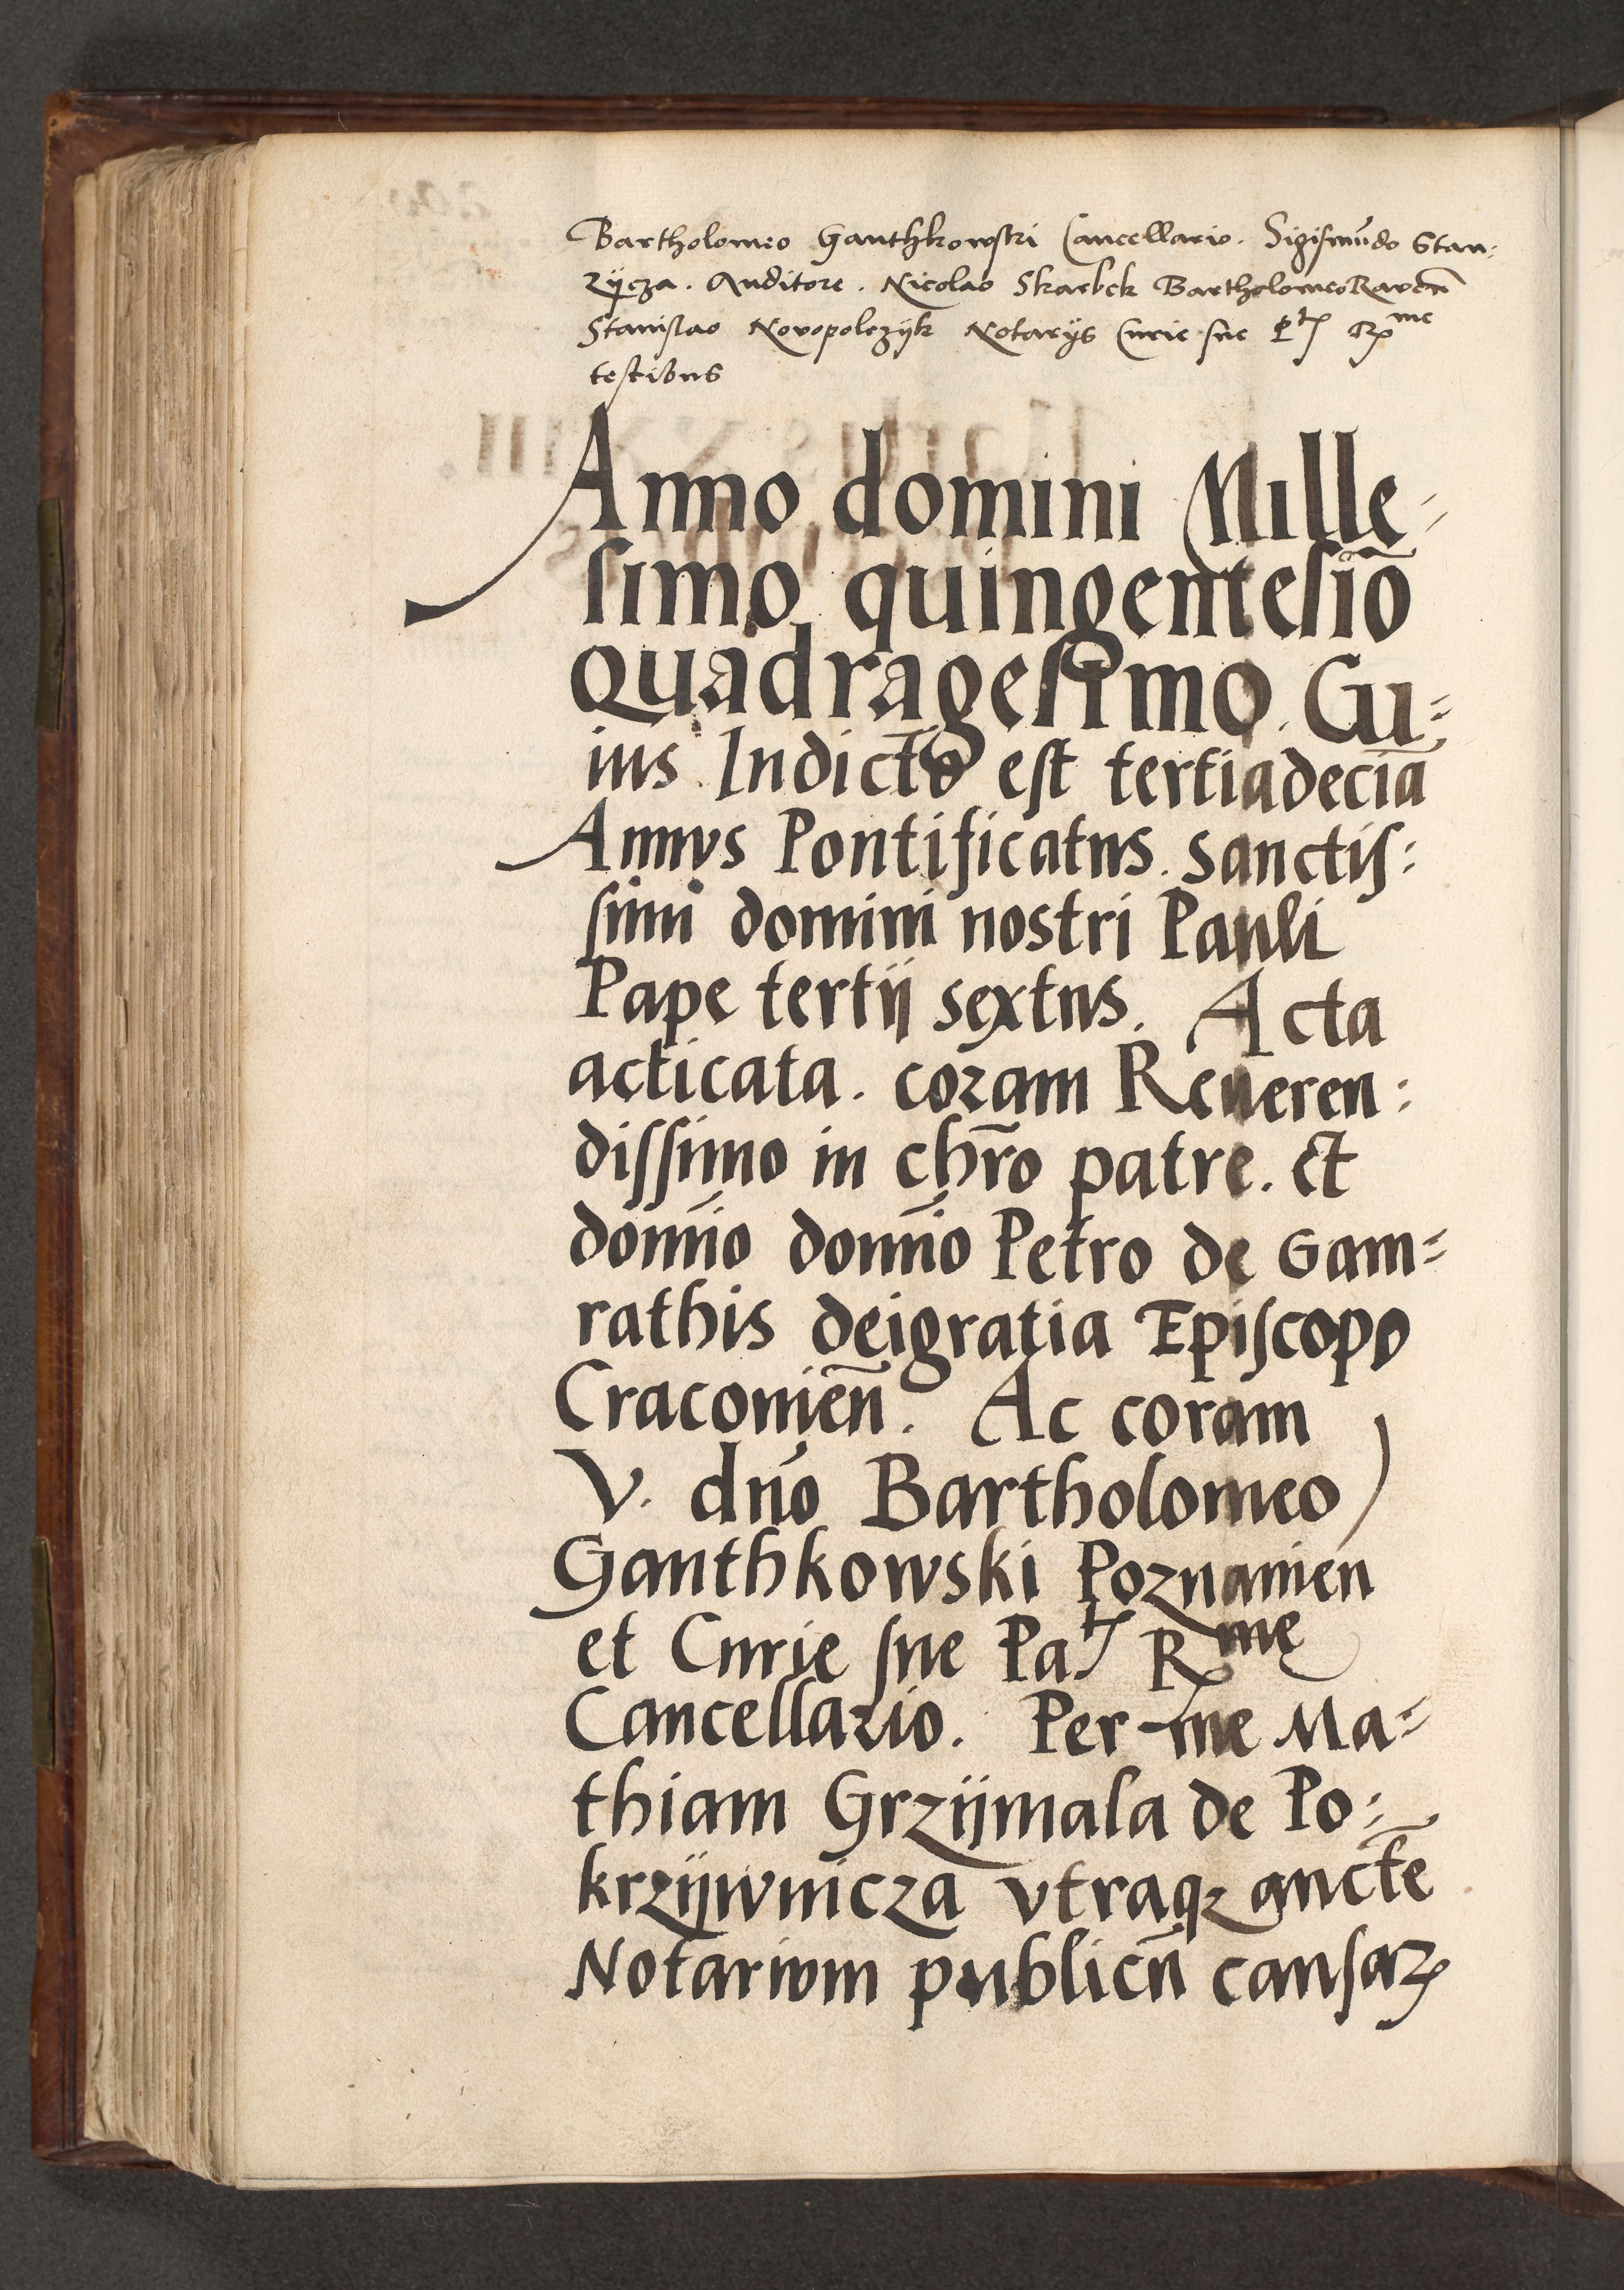 Bartholomeo Ganthkowski Cancellario. Sigismūdo Stan:
zÿcza. Auditore. Nicolao Skarbek Bartholomeo Raven̄
Stanislao Novopolczÿk Notarÿs Curie sue Ptis Rme
testibus
Anno domini Mille-
simo quingentesiō
quadragesimo. Cu=
ius Indictō est tertiadecia̅
Annvs Pontificatus. sanctis:
simi domini nostri Pauli
Pape tertij sextus. Acta
acticata. coram Reueren:
dissimo in chr̄o patre. et
domīo domīo Petro de Gam=
rathis deigratia Episcopo
Craconien̄. Ac coram
V. dn̄o Bartholomeo
Ganthkowski Poznanien
et Curie sue Patis Rme
Cancellario. Per me Ma=
thiam Grzijmala de Po:
krzijwnicza vtraqȝ auctte̅
Notarivm publicū causaꝝ